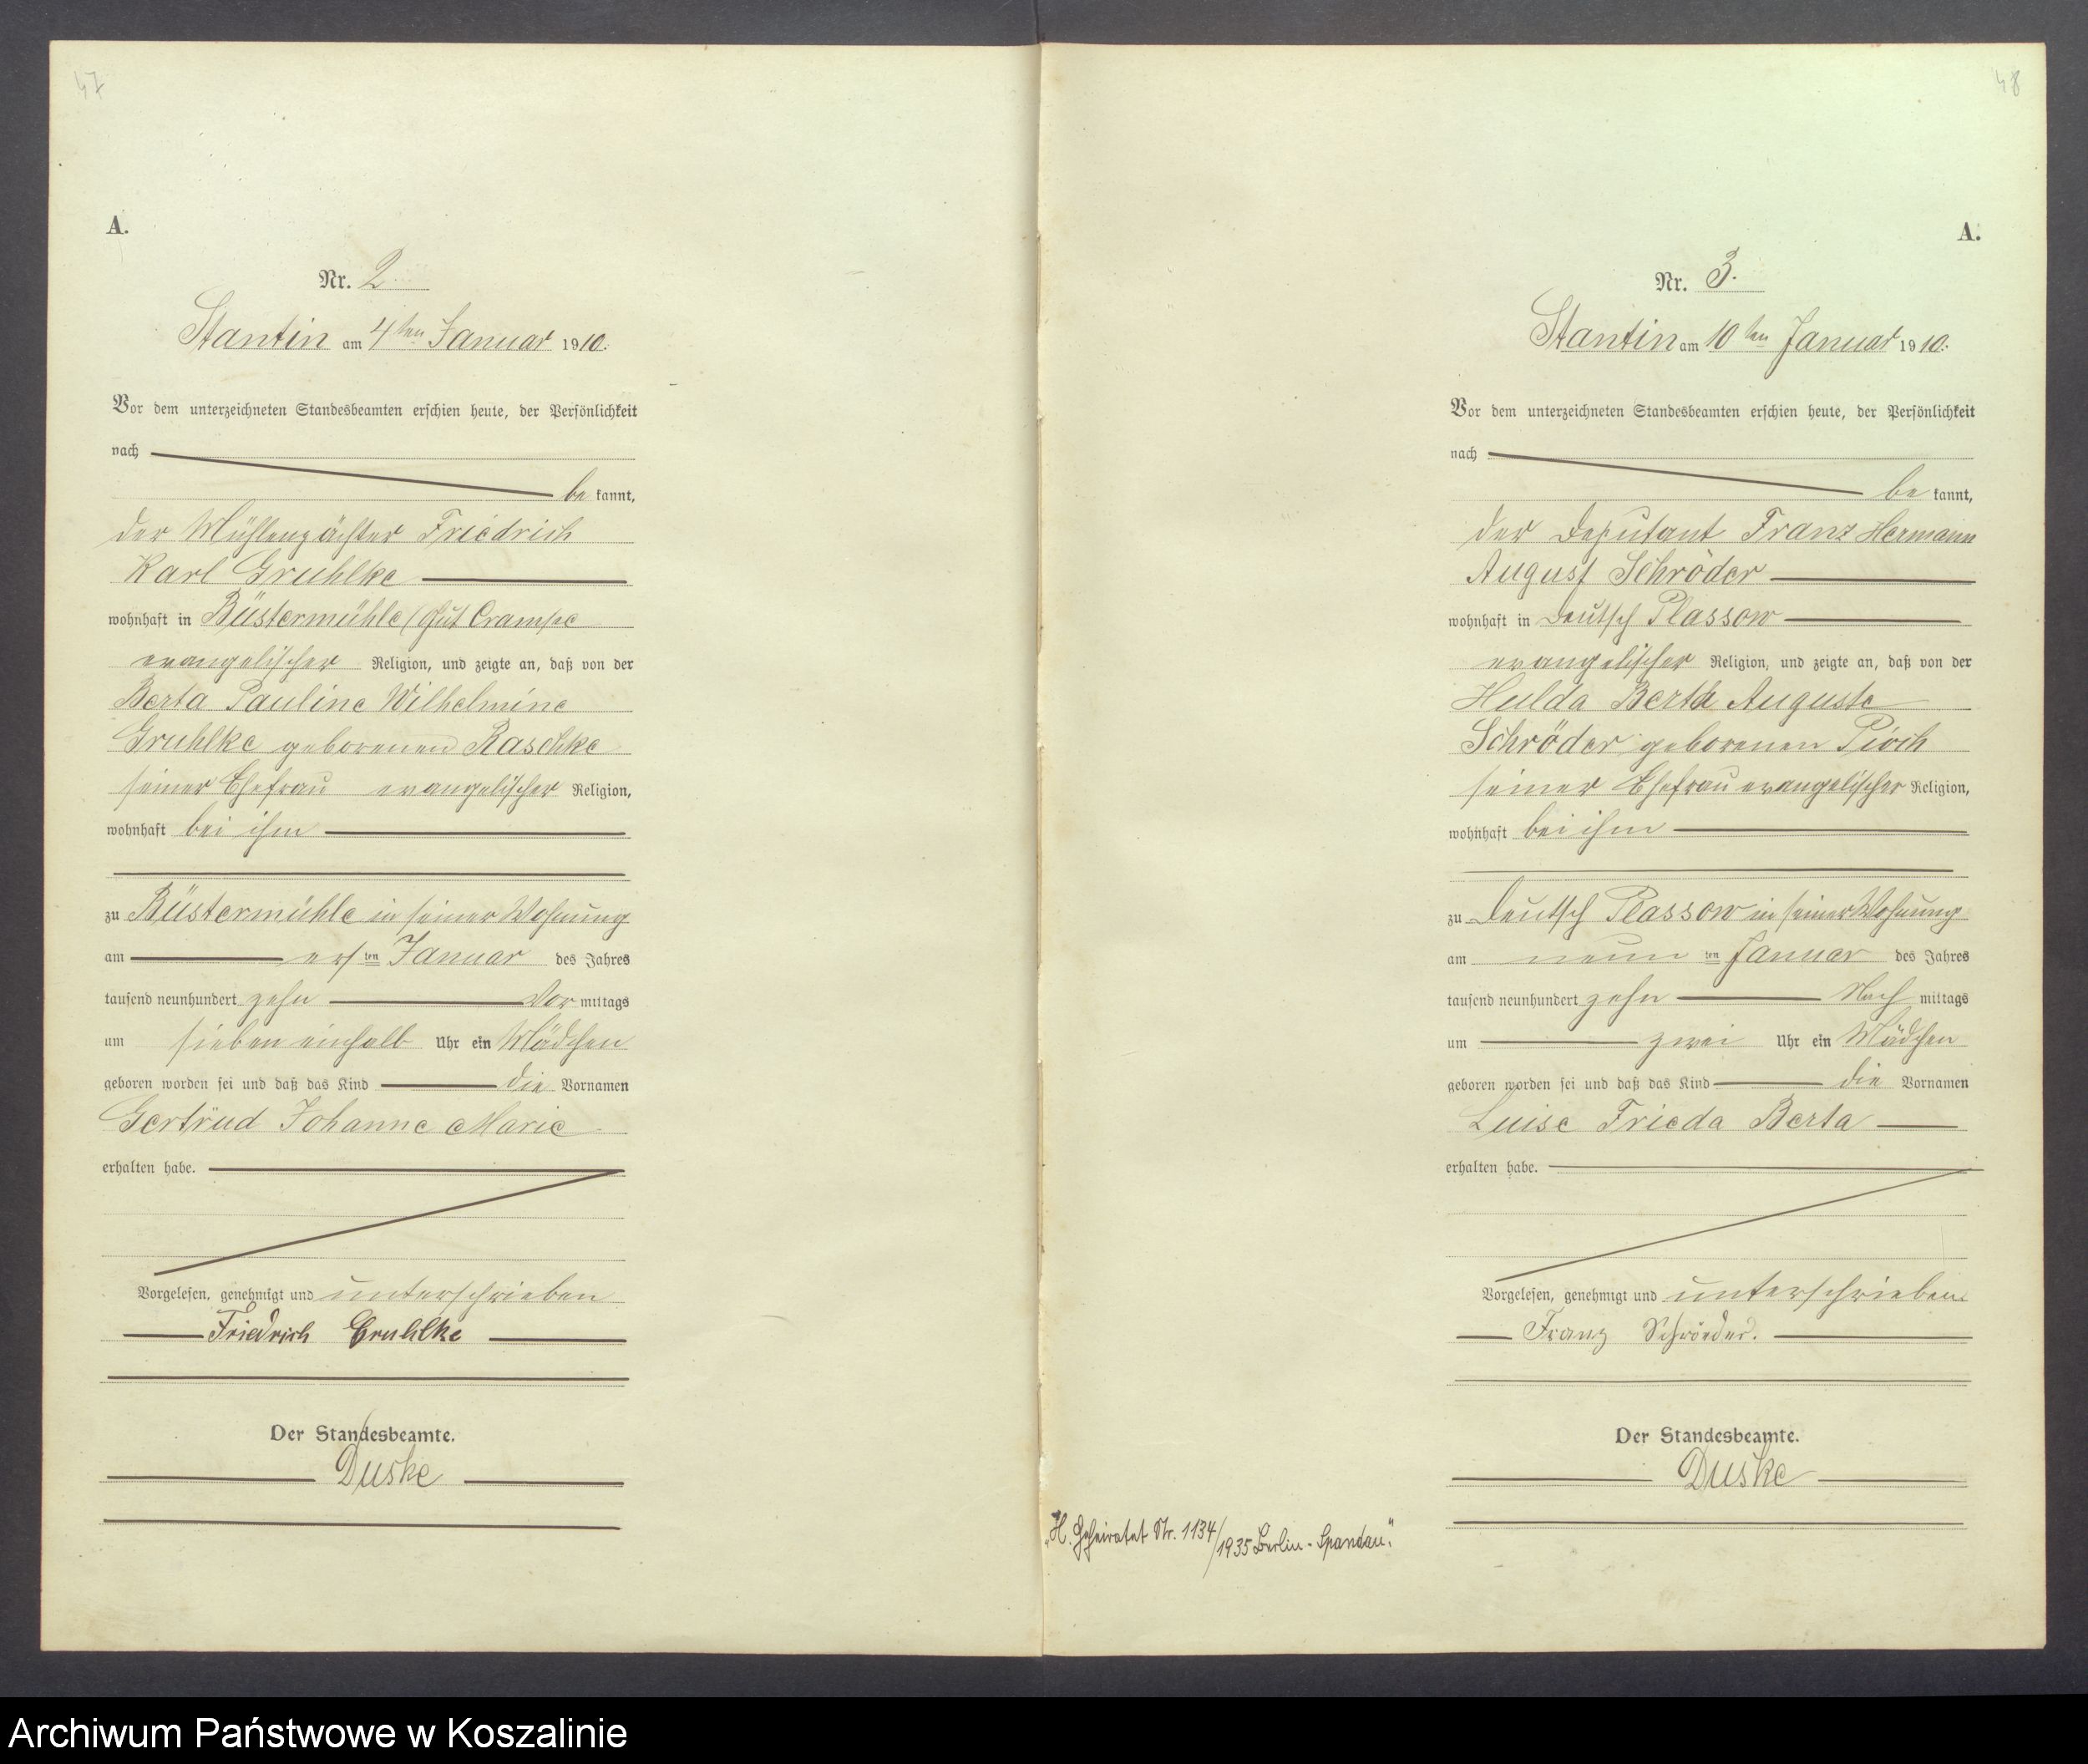 47
A.
Nr. 2
Stantin am 4ten Januar 1910.
Vor dem unterzeichneten Standesbeamten erschien heute, der Persönlichkeit
nach
be kannt,
der Mühlenpächter Friedrich
Karl Gruhlke
wohnhaft in Büstermühle (Gut Crampe
evangelischer Religion, und zeigte an, daß von der
Berta Pauline Wilhelmine
Gruhlke geborenen Raschke
seiner Ehefrau evangelischer Religion,
wohnhaft bei ihm
zu Büstermühle in seiner Wohnung
am ersten Januar des Jahres
tausend neunhundert zehn Vor mittags
um sieben einhalb Uhr ein Mädchen
geboren worden sei und daß das Kind die Vornamen
Gertrud Johanne Marie
erhalten habe.
Vorgelesen, genehmigt und unterschrieben
Friedrich Gruhlke
Der Standesbeamte.
Duske
48
A.
Nr. 3.
Stantin am 10ten Januar 1910.
Vor dem unterzeichneten Standesbeamten erschien heute, der Persönlichkeit
nach
be kannt,
der Deputant Franz Hermann
August Schröder
wohnhaft in Deutsch Plassow
evangelischer Religion, und zeigte an, daß von der
Hulda Berta Auguste
Schröder geborenen Pioch
seiner Ehefrau evangelischer Religion,
wohnhaft bei ihm
zu Deutsch Plassow in seiner Wohnung
am neunten Januar des Jahres
tausend neunhundert zehn Nach mittags
um zwei Uhr ein Mädchen
geboren worden sei und daß das Kind die Vornamen
Luise Frieda Berta
erhalten habe.
Vorgelesen, genehmigt und unterschrieben
Franz Schröder.
Der Standesbeamte.
Duske
„H. Geheiratet Nr. 1134/1935 Berlin-Spandau."
Archiwum Państwowe w Koszalinie